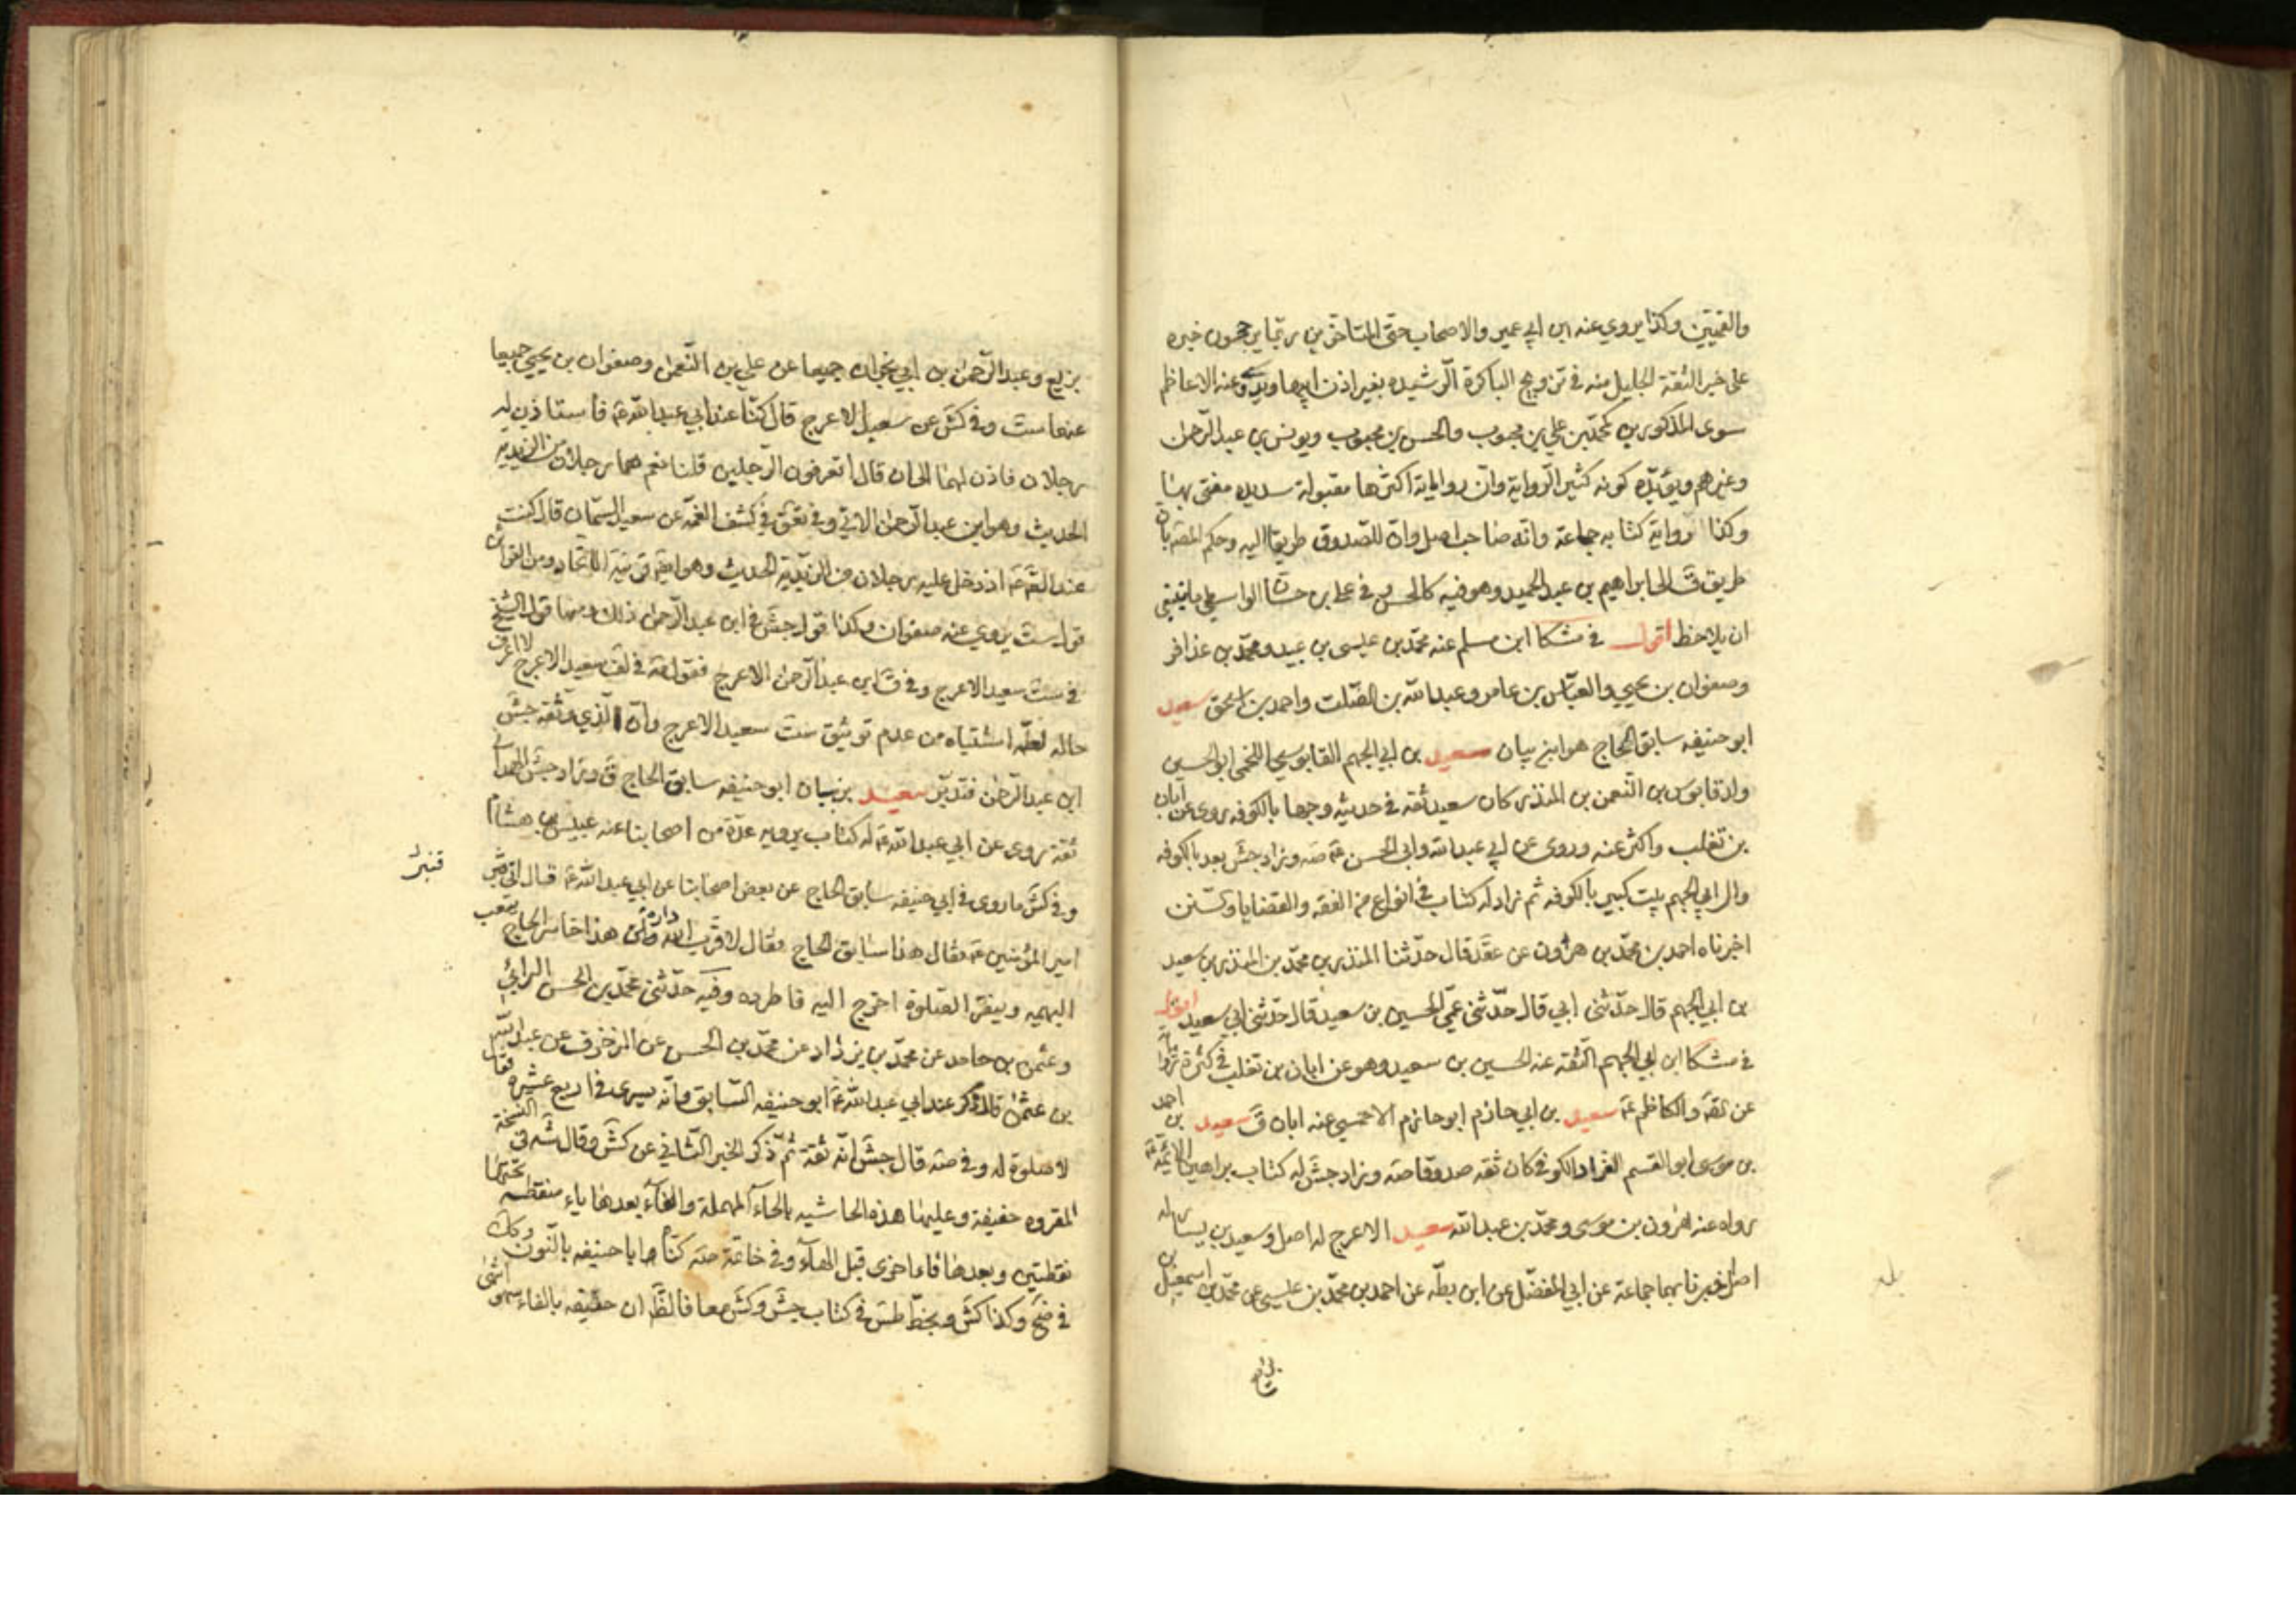 والقميين وكذا يروي عنه ابن ابي عمير والاصحاب حتى المتاخرين ربما يرجحون خبره
على خبر الثقة الجليل منه في تزويج الباكرة الرشيده بغير اذن ابيها ويروي عنه الاعاظم
سوى المذكورين كمحمد بن علي بن محبوب والحسن بن محبوب ويونس بن عبد الرحمن
وغيرهم ويؤيده كونه كثير الرواية وان رواياته اكثرها مقبولة سديده مفتى بها
وكذا رواية كتابه جماعة وانه صاحب اصل وان للصدوق طريقا اليه وحكم المصه بان
طريق ق الى ابراهيم بن عبد الحميد وهو فيه كالحسن وفي علي بن حسان الواسطي ما ينبغي
ان يلاحظ اقول في مشكا ابن مسلم عنه محمد بن عيسى بن عبيد ومحمد بن عذافر
وصفوان بن يحيى والعباس بن عامر وعبد الله بن الصلت واحمد بن اسحق سعيد
ابو حنيفه سابق الحاج هو ابن بيان سعيد بن ابي الجهم القابوسي اللخمي ابو الحسين
ولد قابوس بن النعمن بن المنذر كان سعيد ثقه في حديثه وجها بالكوفه روى عن ابان
بن تغلب واكثر عنه وروى عن ابي عبد الله وابي الحسن ع صه وزاد جش بعد بالكوفه
وال ابي الجهم بيت كبير بالكوفه ثم زاد له كتاب في انواع من الفقه والقضايا والسنن
اخبرناه احمد بن محمد بن هرون عن عقد قال حدثنا المنذر بن محمد بن المنذر بن سعيد
بن ابي الجهم قال حدثني ابي قال حدثني عمي الحسين بن سعيد قال حدثني ابي سعيد اقول
في مشكا ابن ابي الجهم الثقه عنه الحسين بن سعيد وهو عن ابان بن تغلب في كثرة
عن لقه والكاظم ع سعيد بن ابي حازم ابو حازم الاحمسي عنه ابان ق سعيد بن احمد
بن موسى ابو القسم الغراد الكوفي كان ثقه صدوقا صه وزاد جش له كتاب براهين الائمة ع
رواه عنه هرون بن موسى ومحمد بن عبد الله سعيد الاعرج له اصل وسعيد بن يسار له
اصل اخبرنا بهما جماعة عن ابي المفضل عن ابن بطه عن احمد بن محمد بن عيسى عن محمد بن اسمعيل بن
بزيع وعبد الرحمن بن ابي نجران جميعا عن علي بن النعمن وصفوان بن يحيى جميعا
عنهما ست وفي كش عن سعيد الاعرج قال كنا عند ابي عبد الله ع فاستاذن له
رجلان فاذن لهما الى ان قال اتعرفون الرجلين قلنا نعم هما رجلان من الزيديه
الحديث وهو ابن عبد الرحمن الاتي وفي تعق في كشف الغمه عن سعيد السمان قال كنت
عند الص ع اذ دخل عليه رجلان من الزيدية الحديث وهو اقوى قرينة للاتحاد ومن القرائن
قول ست يروي عنه صفوان وكذا قول جش في ابن عبد الرحمن ذلك ومنها قول الشيخ
في ست سعيد الاعرج وفي ق ابن عبد الرحمن الاعرج فقول مة في لف سعيد الاعرج لا اعرف
حاله لعله اشتباه من عدم توثيق ست سعيد الاعرج وان الذي وثقه جش
ابن عبد الرحمن فتدبر سعيد بن بيان ابو حنيفه سابق الحاج ق وزاد جش الهمداني
ثقة روى عن ابي عبد الله ع له كتاب يرويه عدة من اصحابنا عنه عبيس بن هشام
وفي كش ما روى في ابي حنيفه سابق الحاج عن بعض اصحابنا عن ابي عبد الله ع قال اتى قنبر
قنبر
امير المؤمنين ع فقال هذا سابق الحاج فقال لا قرب الله داره هذا خاسر الحاج يتعب
البهيمه وينقر الصلوة اخرج اليه فاطرده وفيه حدثني محمد بن الحسن البراثي
وعثمن بن حامد عن محمد بن يزداد عن محمد بن الحسن عن المزخرف عن عبد الله
بن عثمن قال ذكر عند ابي عبد الله ع ابو حنيفه السابق وانه يسير في اربع عشره فقال
لا صلوة له وفي صه قال جش انه ثقة ثم ذكر الخبر الثاني عن كش وقال شه في النسخة
المقروه حفيفة وعليها هذه الحاشيه بالحاء المهملة والفاء بعدها ياء منقطه تحتها
نقطتين وبعدها فاء اخرى قبل الهاء وفي خاتمة صه كناها ابا حنيفه بالنون وكك
في ضح وكذا كش وبخط طس في كتاب جش وكش معا فالظ ان حفيفه بالفاء سهو انتهى